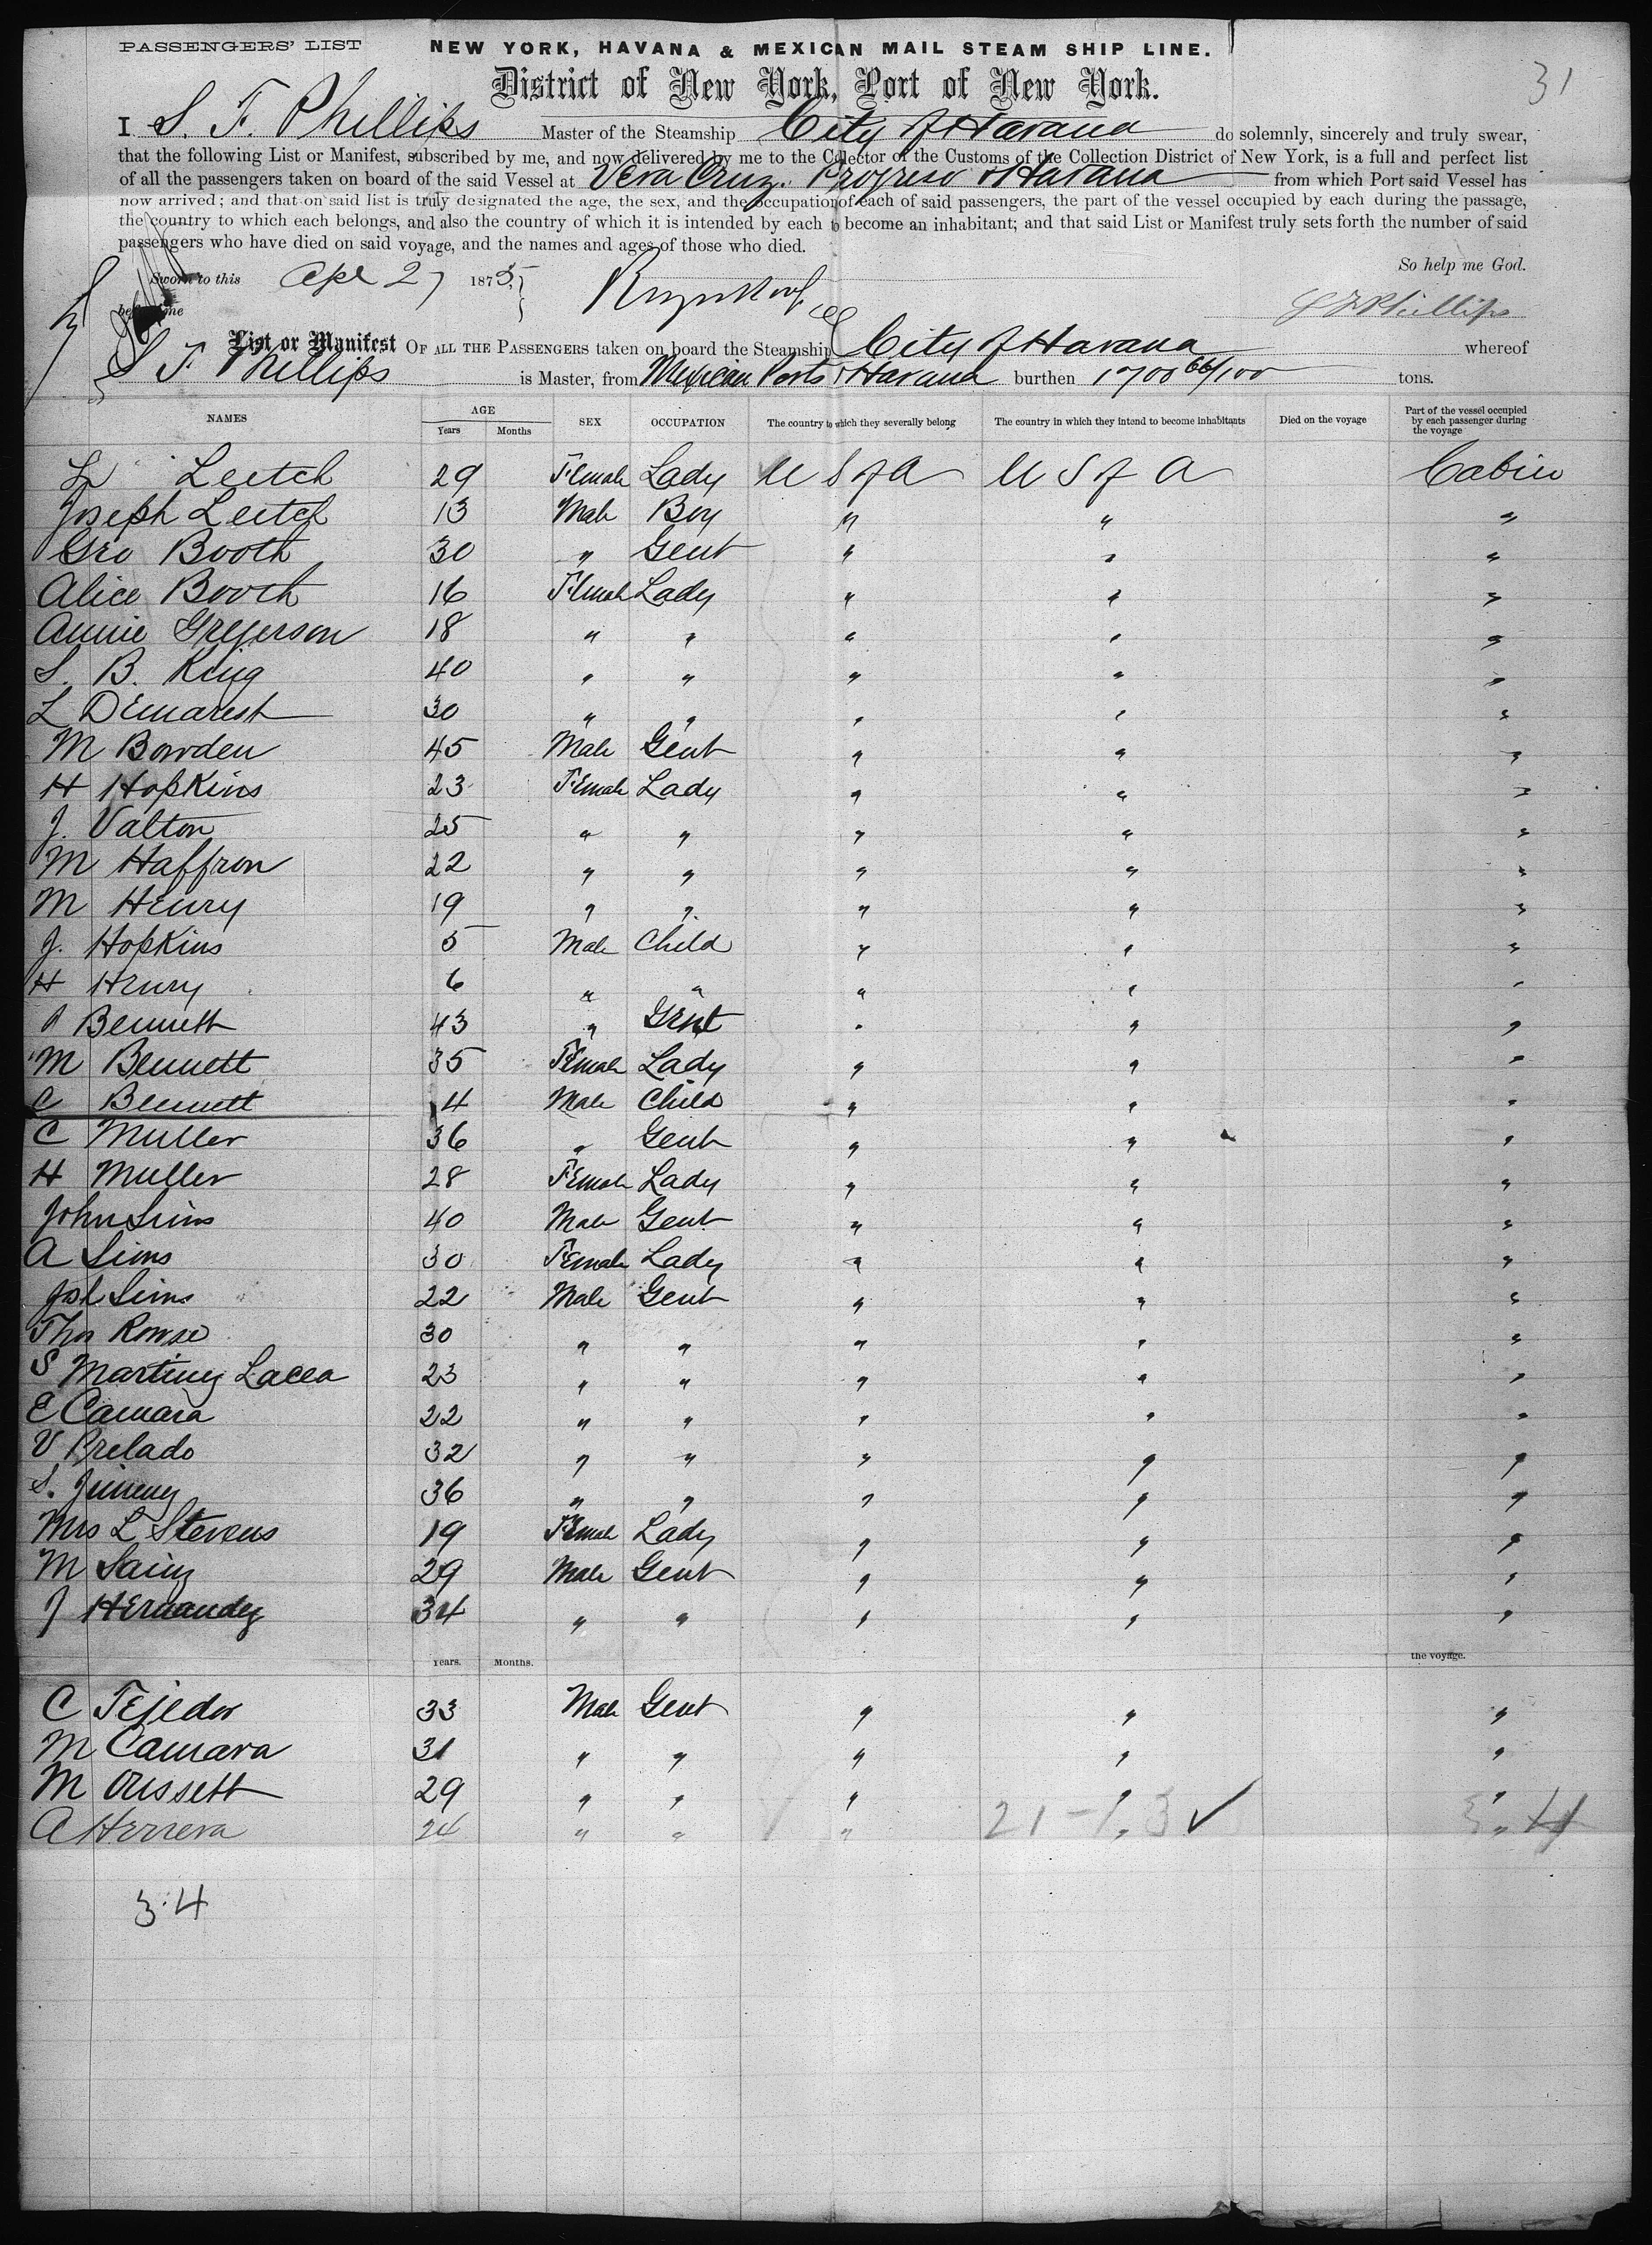 31
PASSENGERS' LIST NEW YORK, HAVANA & MEXICAN MAIL STEAM SHIP LINE.
District of New York, Port of New York.
I S. F. Phillips Master of the Steamship City of Havana do solemnly, sincerely and truly swear,
that the following List or Manifest, subscribed by me, and now delivered by me to the Collector of the Customs of the Collection District of New York, is a full and perfect list
of all the passengers taken on board of the said Vessel at Vera Cruz. Progreso & Havana from which Port said Vessel has
now arrived; and that on said list is truly designated the age, the sex, and the occupation of each of said passengers, the part of the vessel occupied by each during the passage,
the country to which each belongs, and also the country of which it is intended by each to become an inhabitant; and that said List or Manifest truly sets forth the number of said
passengers who have died on said voyage, and the names and ages of those who died.
So help me God.
Sworn to this Apl 27 1875
before me S F Phillips
List or Manifest OF ALL THE PASSENGERS taken on board the Steamship City of Havana whereof
S F. Phillips is Master, from Mexican Ports & Havana burthen 1700 66/100 tons.
NAMES AGE Years Months SEX OCCUPATION The country to which they severally belong The country in which they intend to become inhabitants Died on the voyage Part of the vessel occupied by each passenger during the voyage
L Leetch 29 Female Lady U S of A U S of A Cabin
Joseph Leetch 13 Male Boy " " "
Geo Booth 30 " Gent " " "
Alice Booth 16 Female Lady " " "
Annie Gregerson 18 " " " " "
S. B. King 40 " " " " "
L Demarest 30 " " " " "
M Bowden 45 Male Gent " " "
H Hopkins 23 Female Lady " " "
J. Valton 25 " " " " "
M Haffron 22 " " " " "
M Henry 19 " " " " "
J. Hopkins 5 Male Child " " "
H Henry 6 " " " " "
Bennett 43 " Gent " " "
M Bennett 35 Female Lady " " "
C Bennett 4 Male Child " " "
C Muller 36 " Gent " " "
H Muller 28 Female Lady " " "
John Sims 40 Male Gent " " "
A Sims 30 Female Lady " " "
Jos Sims 22 Male Gent " " "
Thos Rowse 30 " " " " "
S Martinez Lacca 23 " " " " "
E Camara 22 " " " " "
V Prelado 32 " " " " "
S. Jimenez 36 " " " " "
Mrs L Stevens 19 Female Lady " " "
M Sainz 29 Male Gent " " "
J Hernandez 34 " " " " "
Years. Months. the voyage.
C Tejedor 33 Male Gent " " "
M Camara 31 " " " " "
M Oussett 29 " " " " "
A Herrera 24 " " " 21-13 ✓ " 34
34